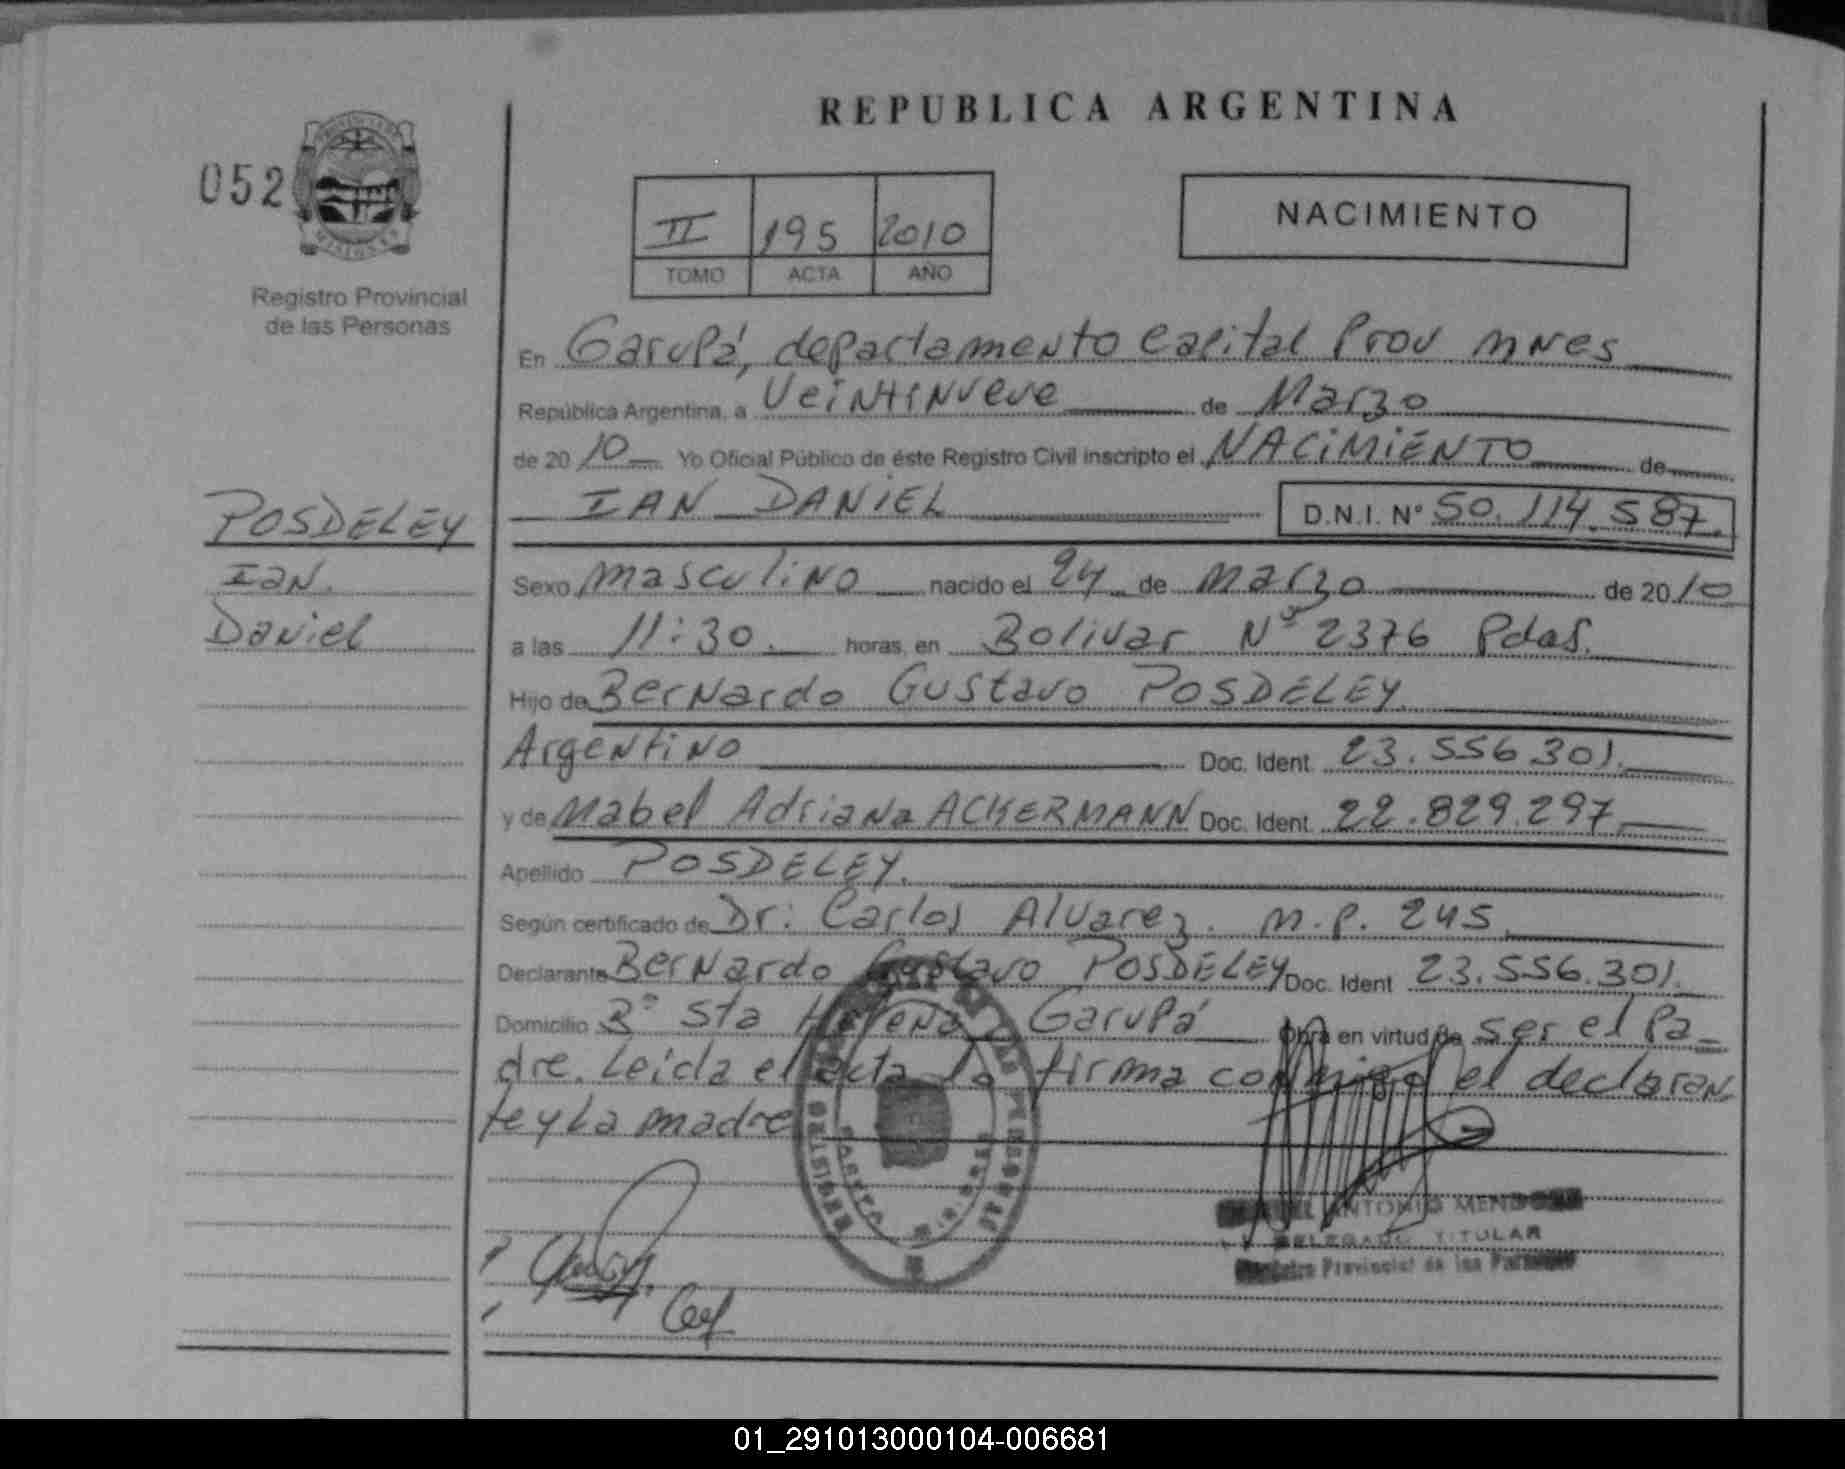 REPUBLICA ARGENTINA
052
PROVINCIA DE
MISIONES
Registro Provincial
de las Personas
II 195 2010
TOMO ACTA AÑO
NACIMIENTO
En Garupá, departamento Capital Prov mnes
República Argentina, a Veintinueve de Marzo
de 2010 Yo Oficial Público de éste Registro Civil inscripto el NACIMIENTO de
IAN DANIEL D.N.I. N° 50.114.587.
POSDELEY
Ian
Daniel
Sexo masculino nacido el 24 de marzo de 2010
a las 11:30. horas, en Bolivar N° 2376 Pdas.
Hijo de Bernardo Gustavo POSDELEY
Argentino Doc. Ident. 23.556.301.
y de Mabel Adriana ACKERMANN Doc. Ident. 22.829.297
Apellido POSDELEY.
Según certificado de Dr: Carlos Alvarez. m.p. 245
Declarante Bernardo Gustavo POSDELEY Doc. Ident 23.556.301.
Domicilio B° Sta Helena Garupá Obra en virtud de ser el pa-
dre. Leída el acta la firma conmigo el declaran
te y La madre
REGISTRO DE LAS PERSONAS
ANTONIO MENDOZA
DELEGADO TITULAR
Registro Provincial de las Personas
01_291013000104-006681